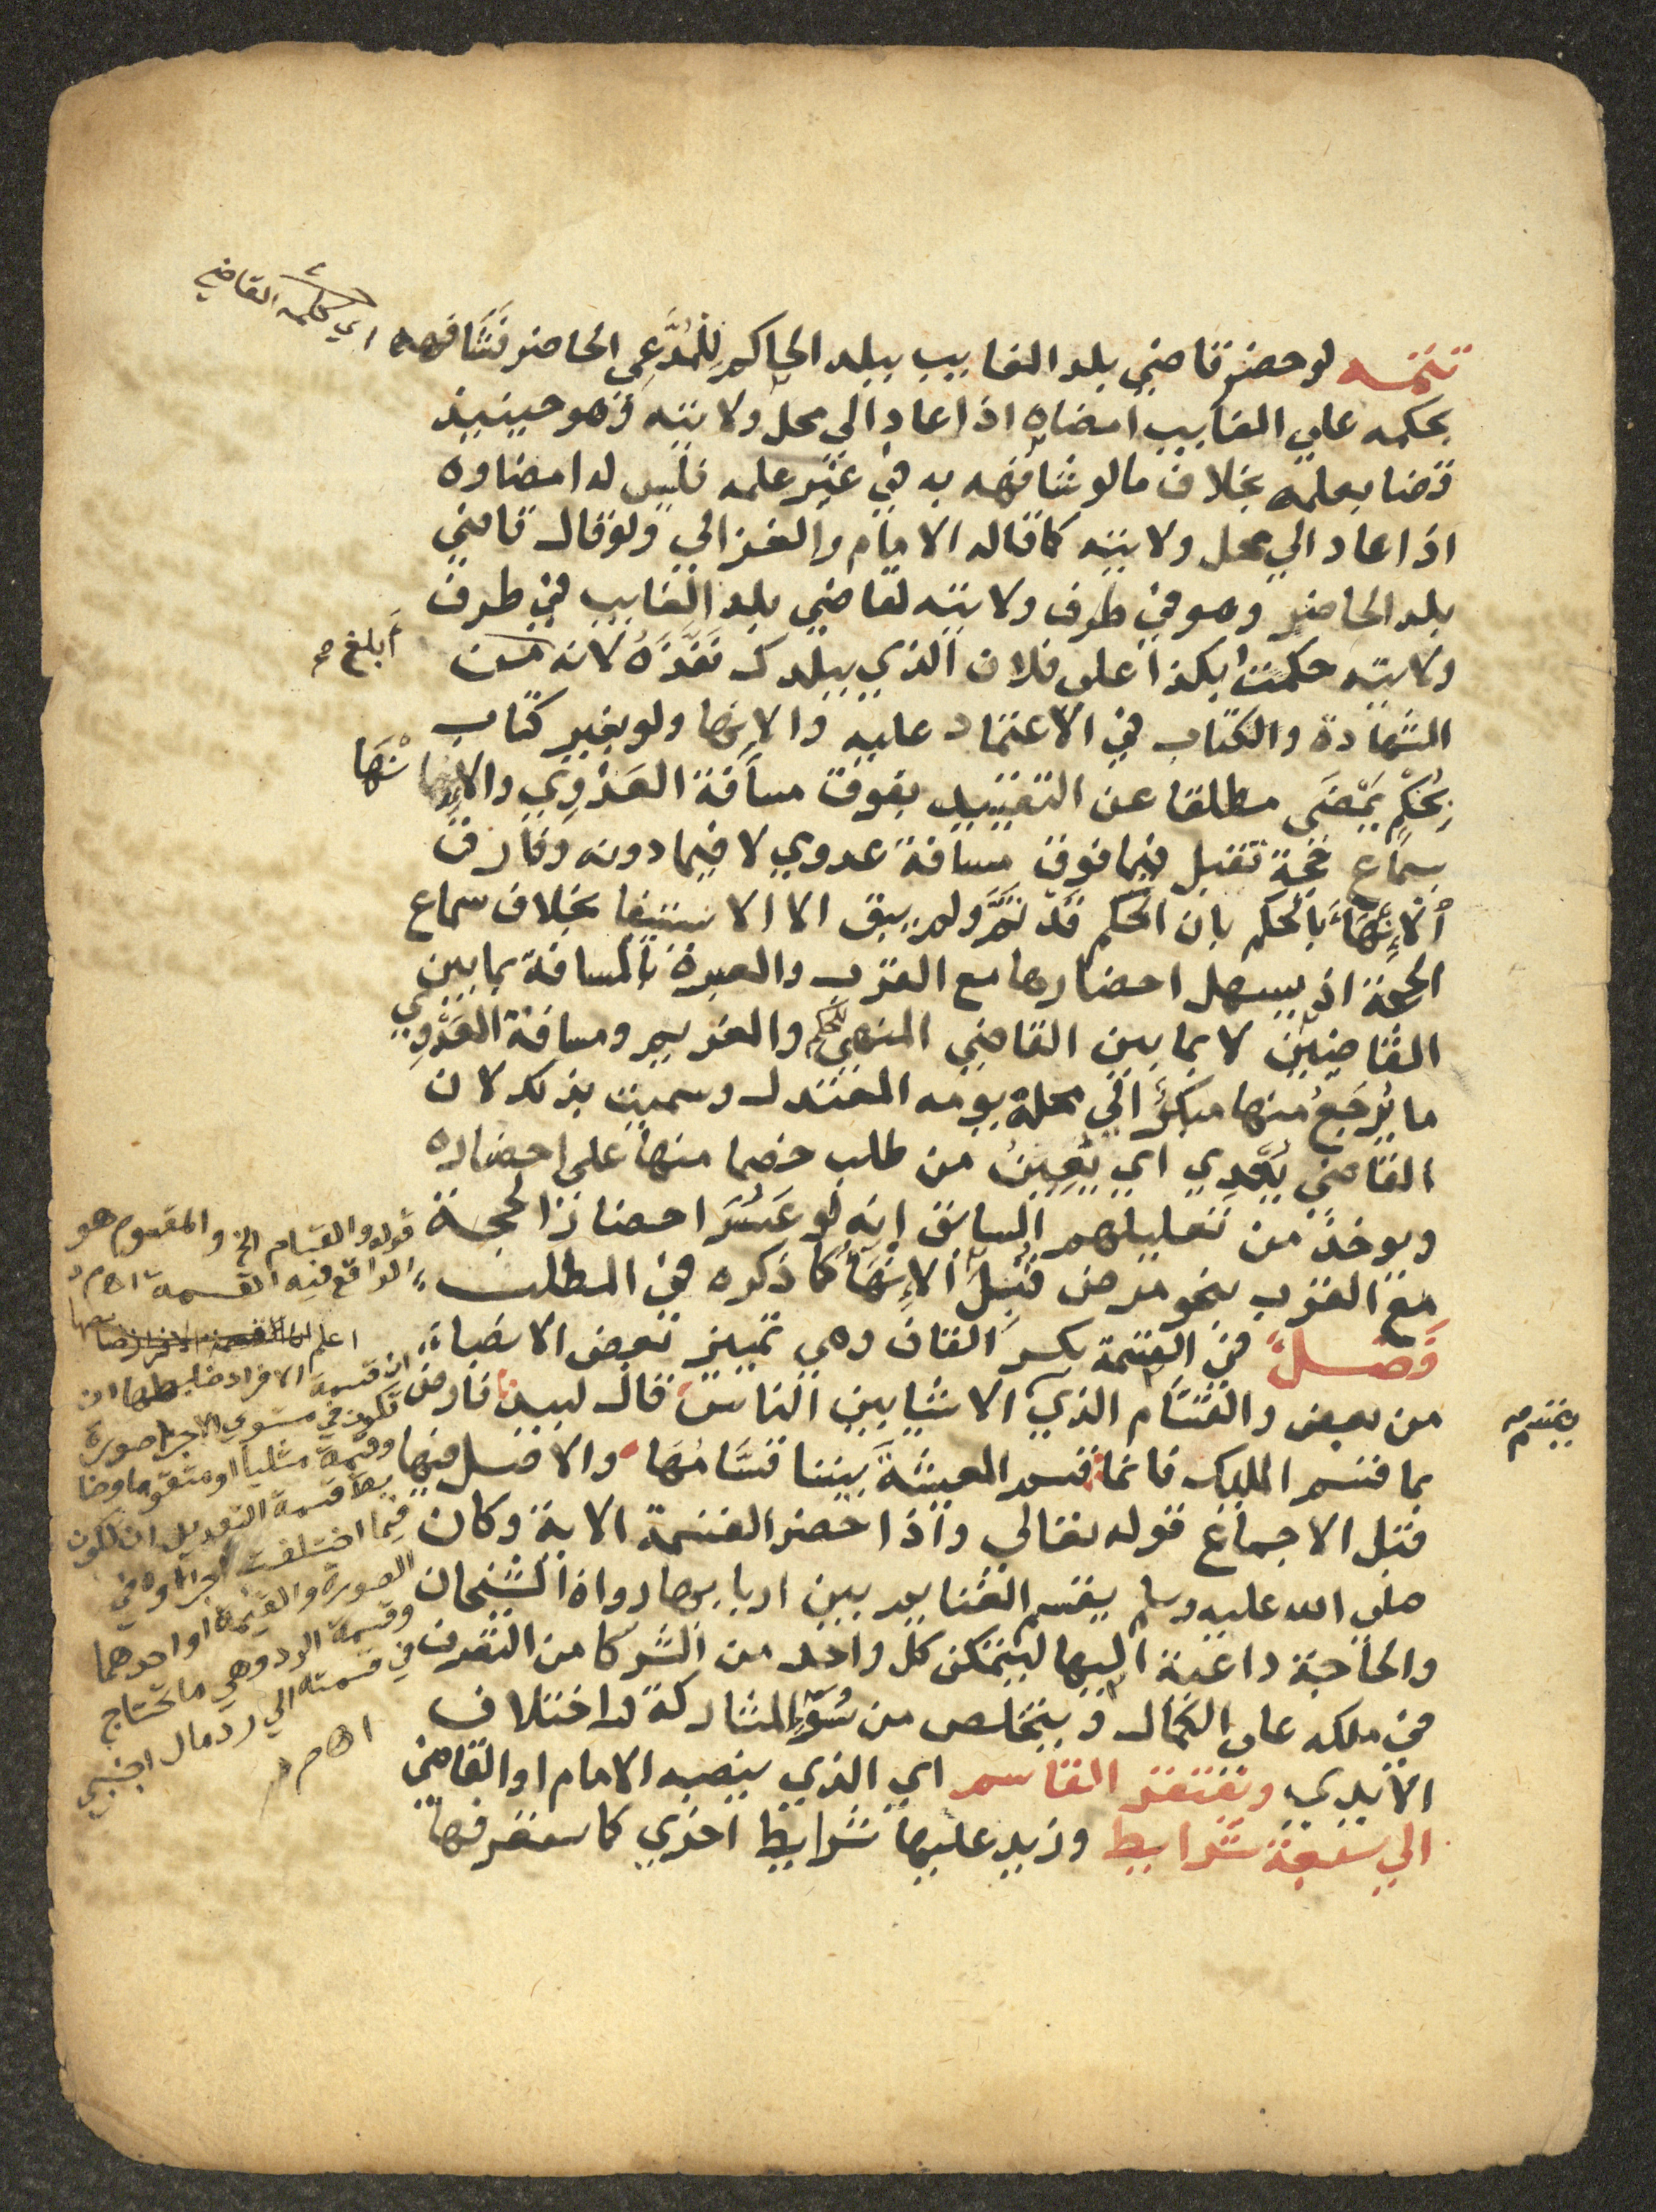 تتمه لو حضر قاضي بلد الغايب ببلد الحاكم للمُدَّعِي الحاضر فَشَافهه
بحكمه علي الغايب امضاه اذا عاد الي محل ولايته وهو حينيذ
قضا بعلمه بخلاف مالو شافهه به في غير عمله فليس له امضاوه
اذا عاد الي محل ولايته كما قاله الامام والغزالي ولو قال قاضي
بلد الحاضر وهو في طرف ولايته لقاضي بلد الغايب في طرف
ولايته حكمت بكذا علي فلان الذي ببلدك نَفَّذَهُ لانه من
المشهادة والكتاب في الاعتماد عليه والانها ولو بغير كتاب
بِحُكْمٍ يمْضَي مطلقا عن التقييد بفوق مسافة العَدْوِي والانها
بسماع حجة تقبل فيما فوق مسافة عدوي لا فيما دونه وفارق
الانهاء بالحكم بان الحكم قد تَمَّ ولم يبق الا الاستيفا بخلاف سماع
الحجة اذ يسهل احضارها مع القرب والعبرة بالمسافة بما بين
القاضيين لا بما بين القاضي المنهي للحكم والغريم ومسافة العَدْوِي
ما يُرجَعُ منها مبكرًا الي محله يومه المعتدل وسميت بذلك لان
القاضي يُعْدِي اي يُعِينُ من طلب خصما منها علي احضاره
ويوخذ من تعليلهم السابق انه لو عَسُرَ احضار الحجة
مع القرب بنحو مرض قُبِلَ الإنهاء كما ذكره في المطلب
فَصلٌ في القسمة بكسر القاف وهي تمييز بعض الانصباء
من بعض والقَسَّام الذي الاشيا بين الناس قال لبيد فارض
بما قسم المليك فانما قسم المعيشةَ بيننا قسَّامُهَا والاصل فيها
قبل الاجماع قوله تعالي واذا حضر القسمة الاية وكان
صلي الله عليه وسلم يقسم الغنايم بين اربابها رواه الشيخان
والحاجة داعية اليها ليتمكن كل واحد من الشركا من التصرف
في ملكه علي الكمال ويتخلص من سُوءِ المشاركة واختلاف
الايدي ويفتقر القاسم اي الذي ينصبه الامام او القاضي
الي سبعة شرايط وزيد عليها شرايط اخري كما ستعرفها
اي كلمه القاضي
أبلغ صح
نْهَا
يقسم صح
قوله والقسام الخ والمقسوم هو
الواقع فيه القسمة اهـ م د
اعلم
ان قسمة الافراز ضابطها ان
تكون في مستوي الاجزا صورة
وقيمة مثليا او متقوما وضا
بط قسمة التعديل ان تكون
فيما اختلفت اجزاوه في
الصورة والقيمة او احدهما
وقسمة الرد وهي ما تحتاج
في قسمته الي رد مال اجنبي
اهـ م د